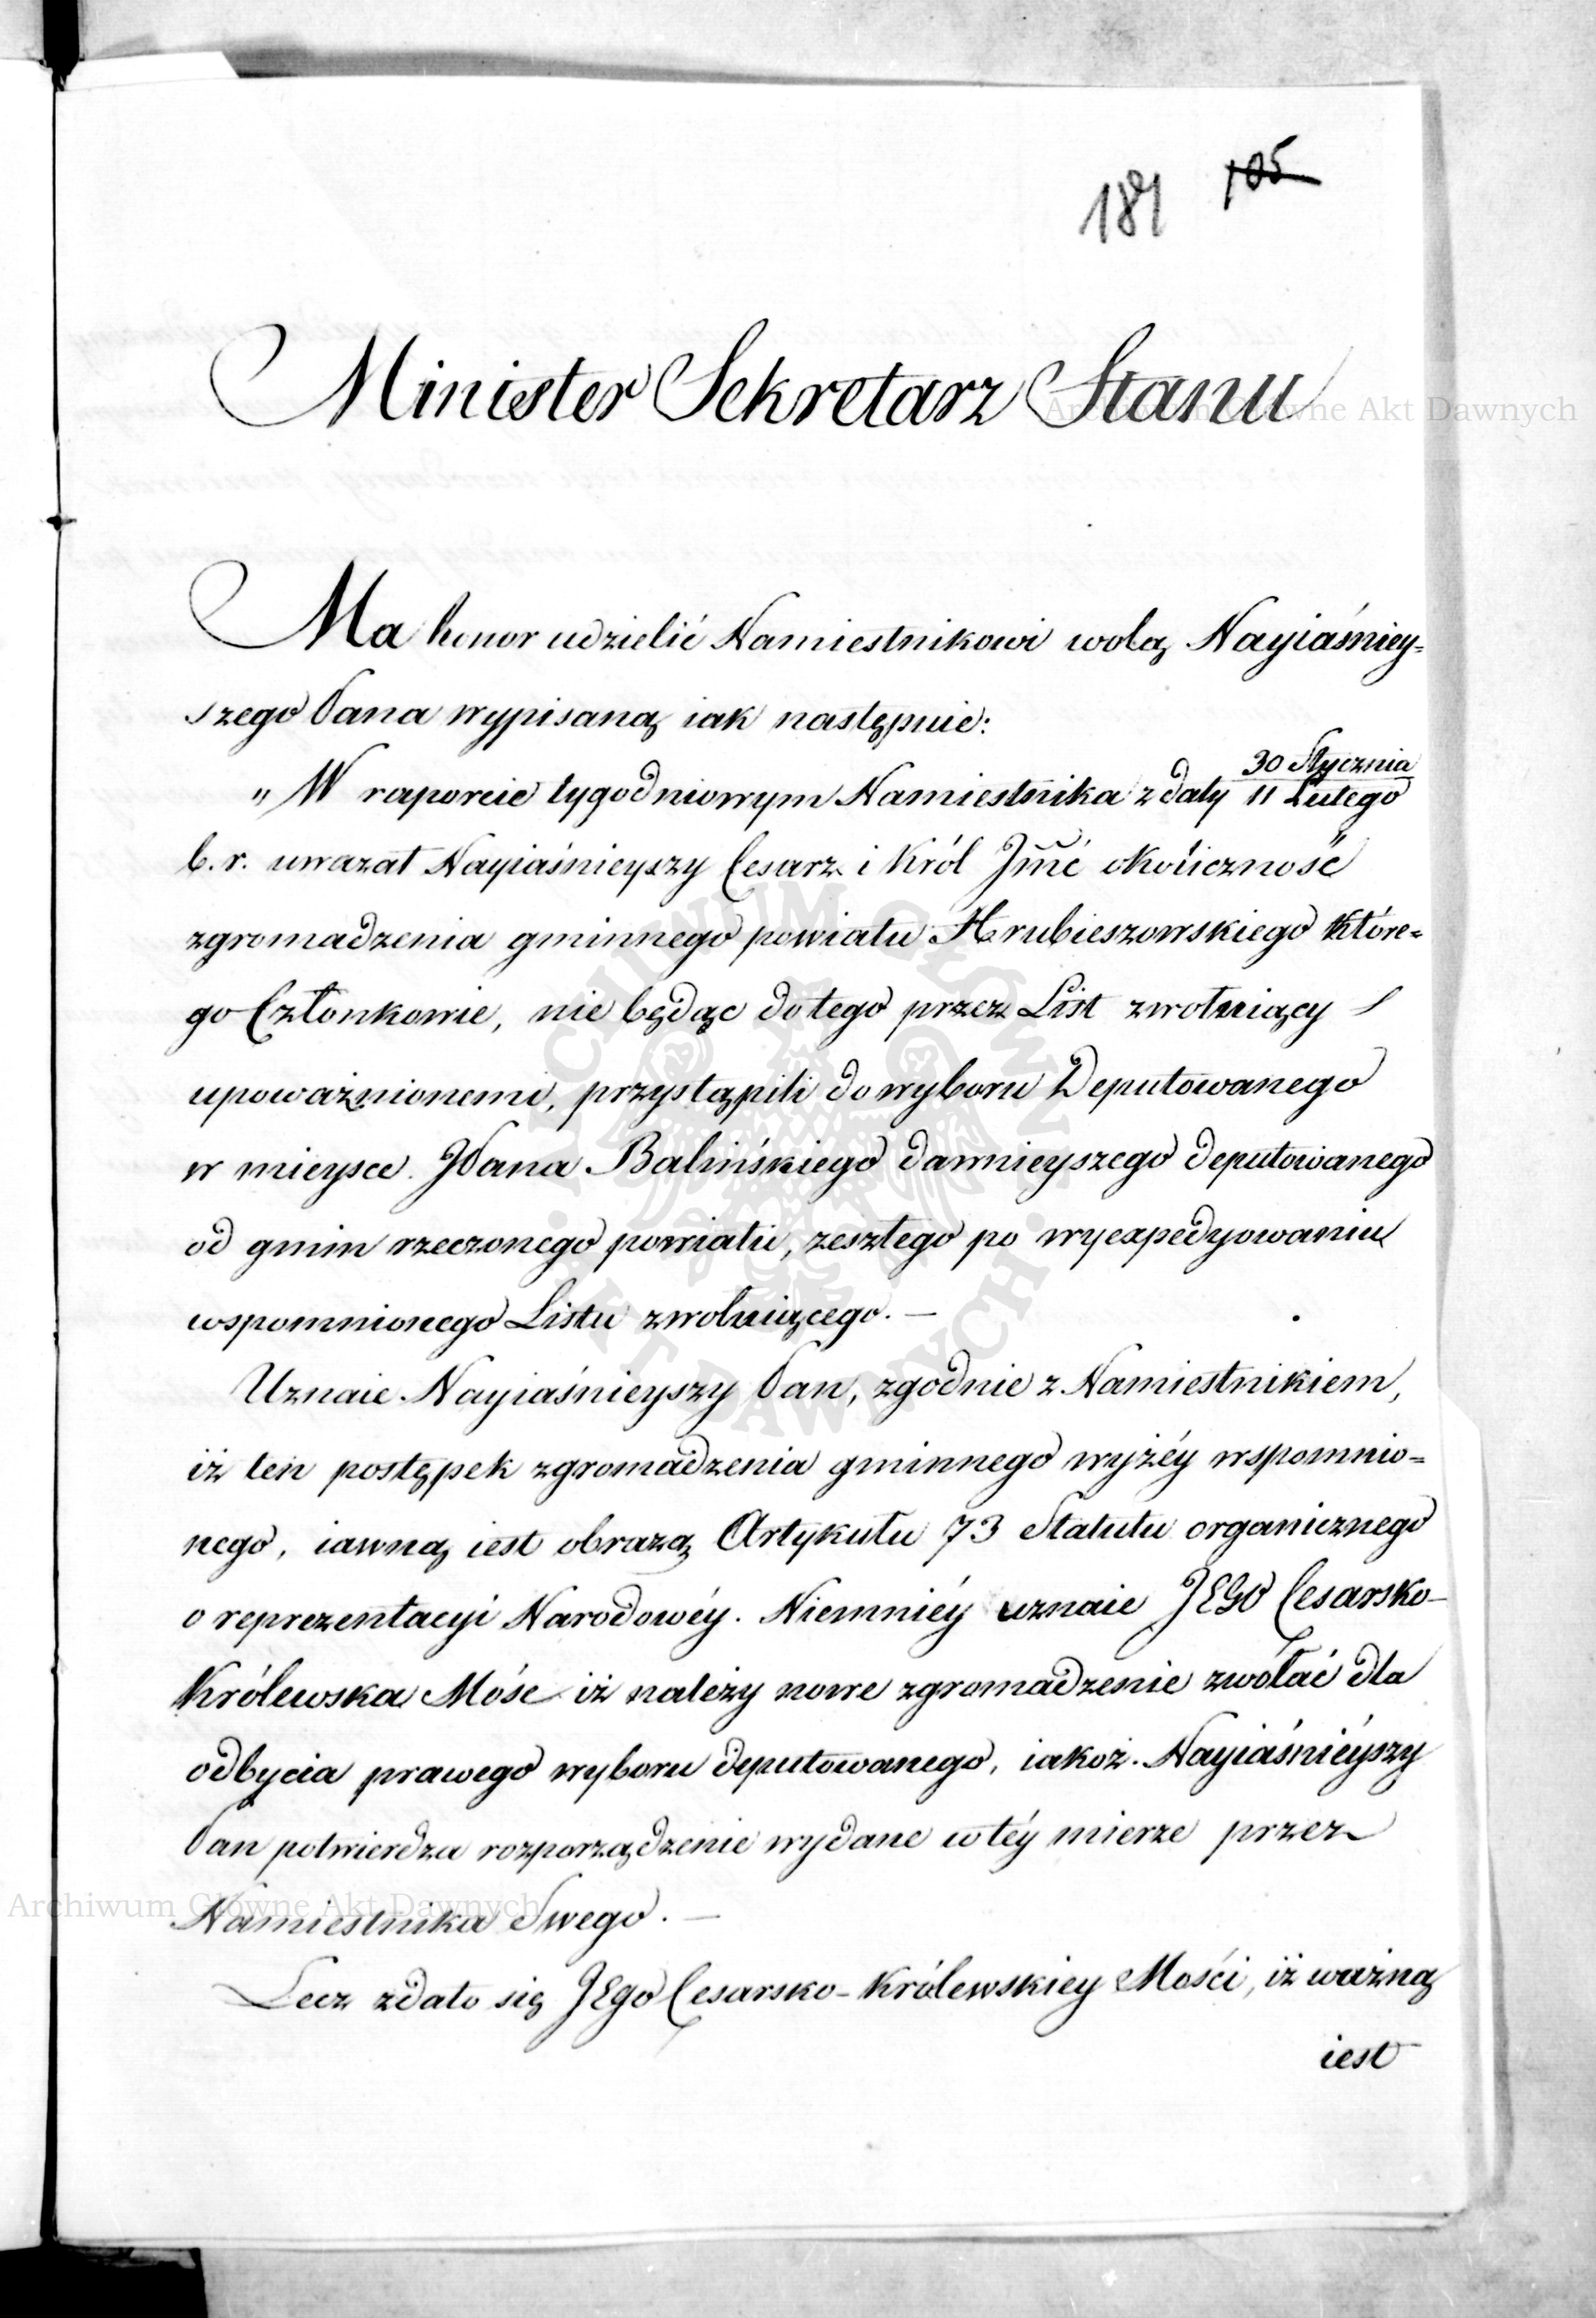 181 105
Minister Sekretarz Stanu
Ma honor udzielić Namiestnikowi wolą Nayiaśniey-
szego Pana wypisaną iak następuie:
„W raporcie tygodniowym Namiestnika z daty 30 Stycznia / 11 Lutego
b. r. uważał Nayiaśnieyszy Cesarz i Król Jmć okoliczność
zgromadzenia gminnego powiatu Hrubieszowskiego które-
go Członkowie, nie będąc do tego przez List zwołuiący
upoważnionemi, przystąpili do wyboru Deputowanego
w mieysce JPana Balińskiego dawnieyszego deputowanego
od gmin rzeczonego powiatu, zeszłego po wyexpedyowaniu
wspomnionego Listu zwołuiącego. —
Uznaie Nayiaśnieyszy Pan, zgodnie z Namiestnikiem,
iż ten postępek zgromadzenia gminnego wyżéy wspomnio-
nego, iawną iest obrazą Artykułu 73 Statutu organicznego
o reprezentacyi Narodowéy. Niemniéy uznaie JEGO Cesarsko-
Królewska Mość iż należy nowe zgromadzenie zwołać dla
odbycia prawego wyboru deputowanego, iakoż Nayiaśniéyszy
Pan potwierdza rozporządzenie wydane w téy mierze przez
Namiestnika Swego. —
Lecz zdało się JEgo Cesarsko-Królewskiey Mości, iż ważną
iest
Archiwum Główne Akt Dawnych
Archiwum Główne Akt Dawnych
ARCHIWUM GŁÓWNE AKT DAWNYCH